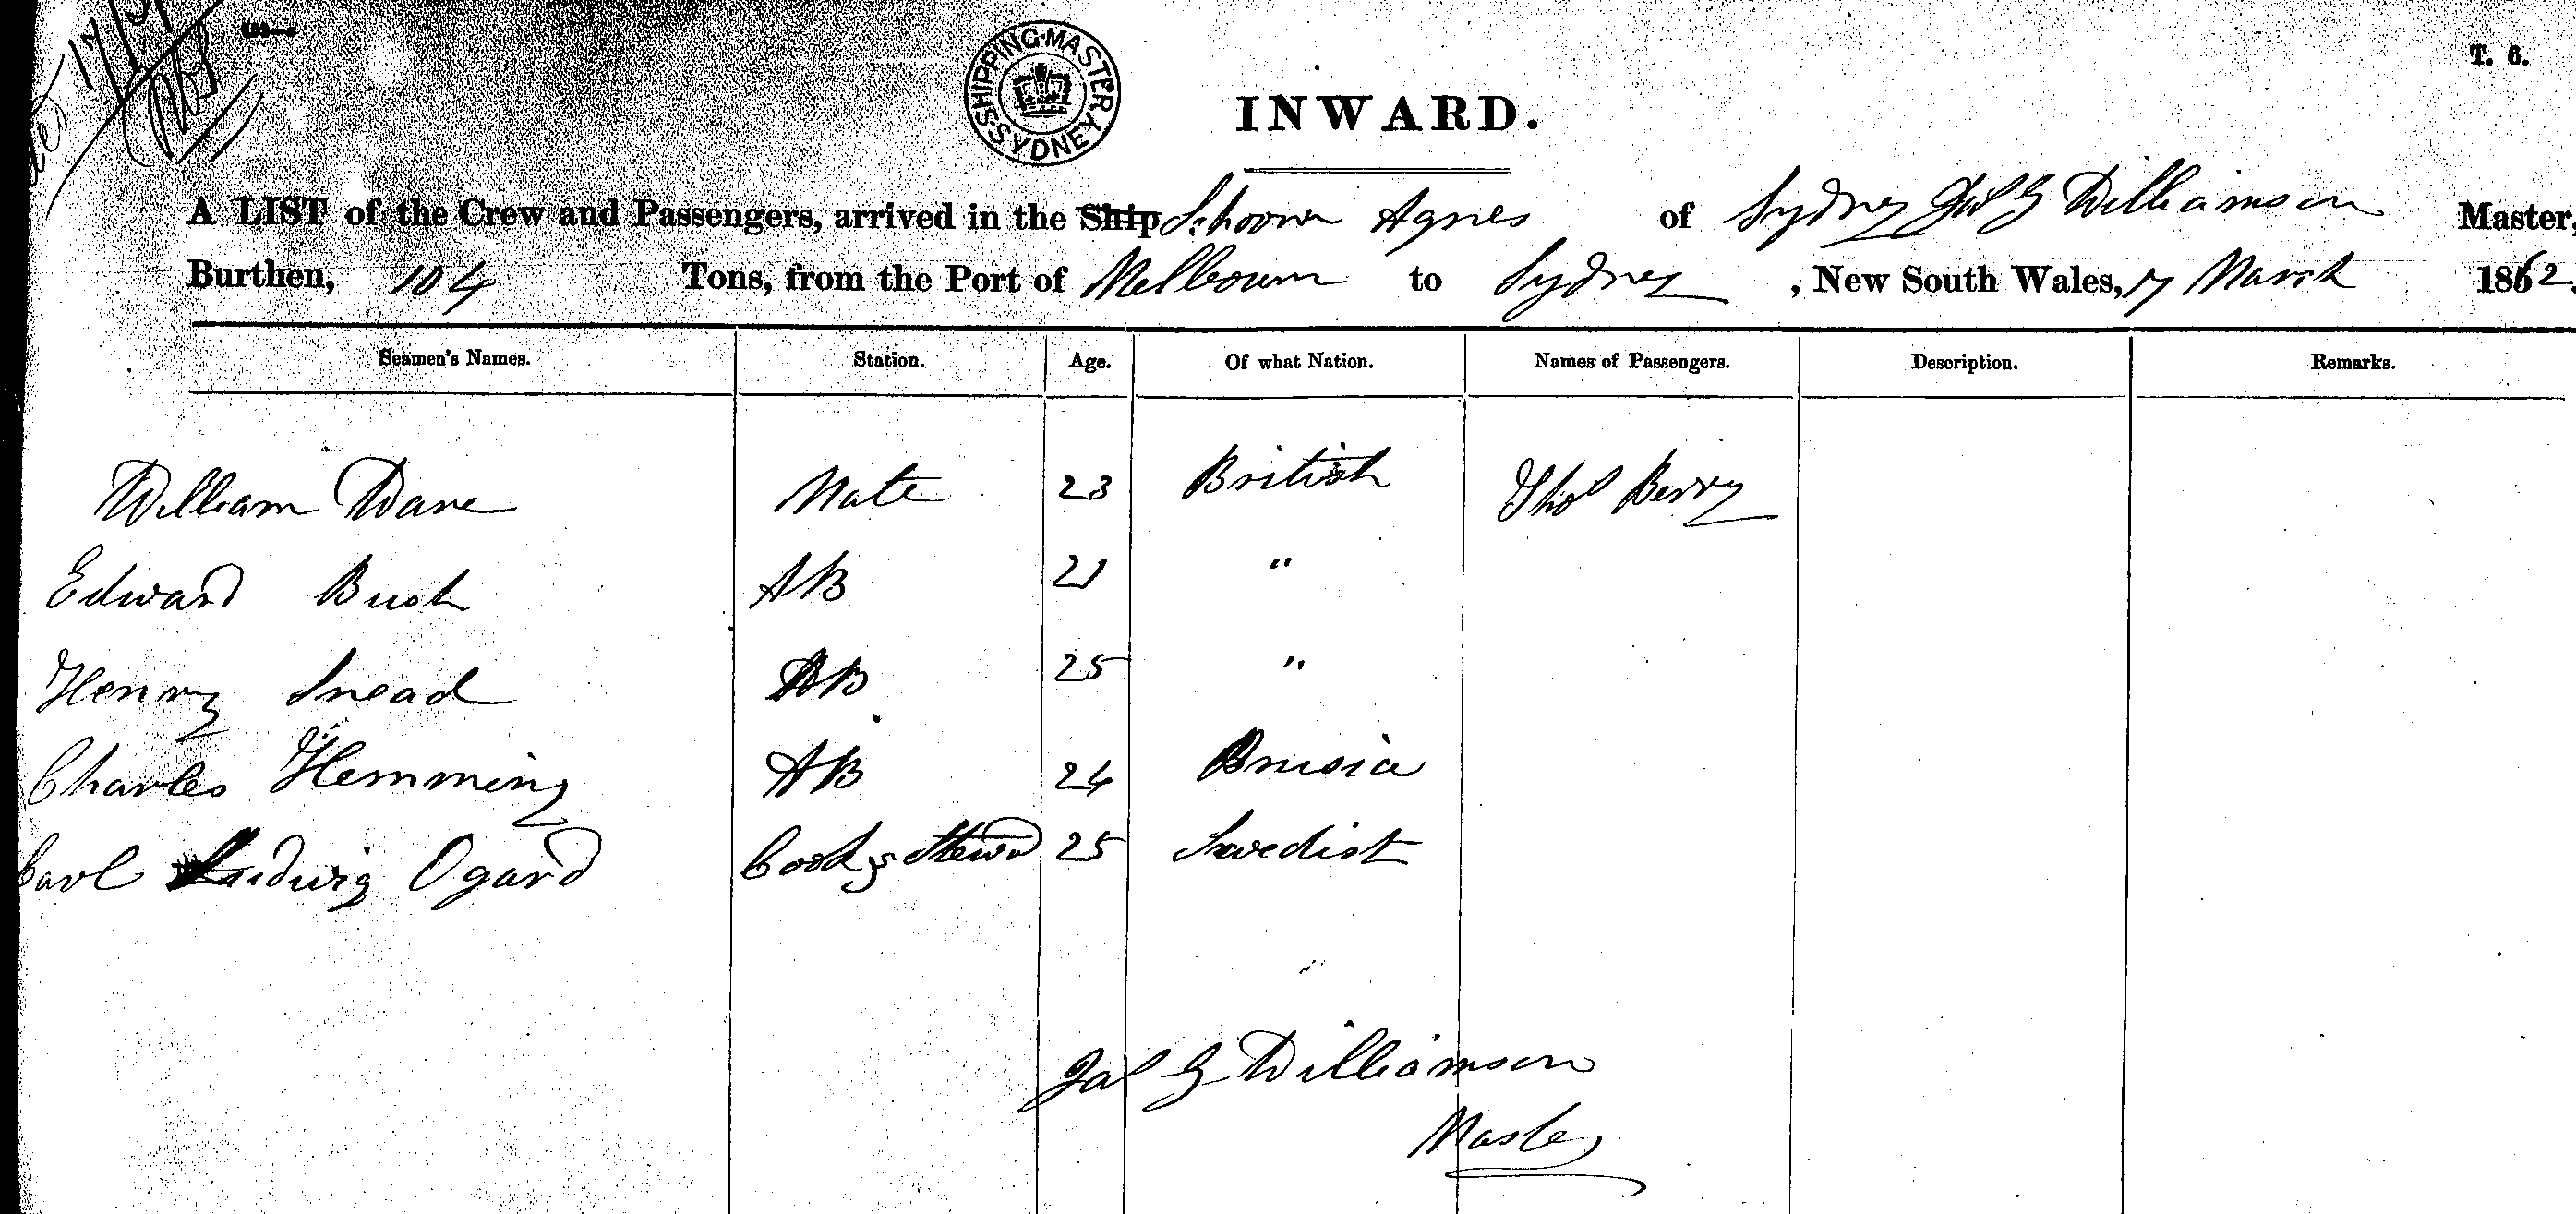 SHIPPING MASTER SYDNEY
T. 6.
INWARD.
A LIST of the Crew and Passengers, arrived in the Ship Schooner Agnes of Sydney Jas G Williamson Master,
Burthen, 104 Tons, from the Port of Melbourn to Sydney, New South Wales, 17 March 1862.
Seamen's Names. Station. Age. Of what Nation. Names of Passengers. Description. Remarks.
William Ware Mate 23 British Thos Berry
Edward Bush AB 21 "
Henry Snead AB 25 "
Charles Hemming AB 24 Prusia
Carl Ludwig Ogard Cook & Steward 25 Swedish
Jas G Williamson
Master